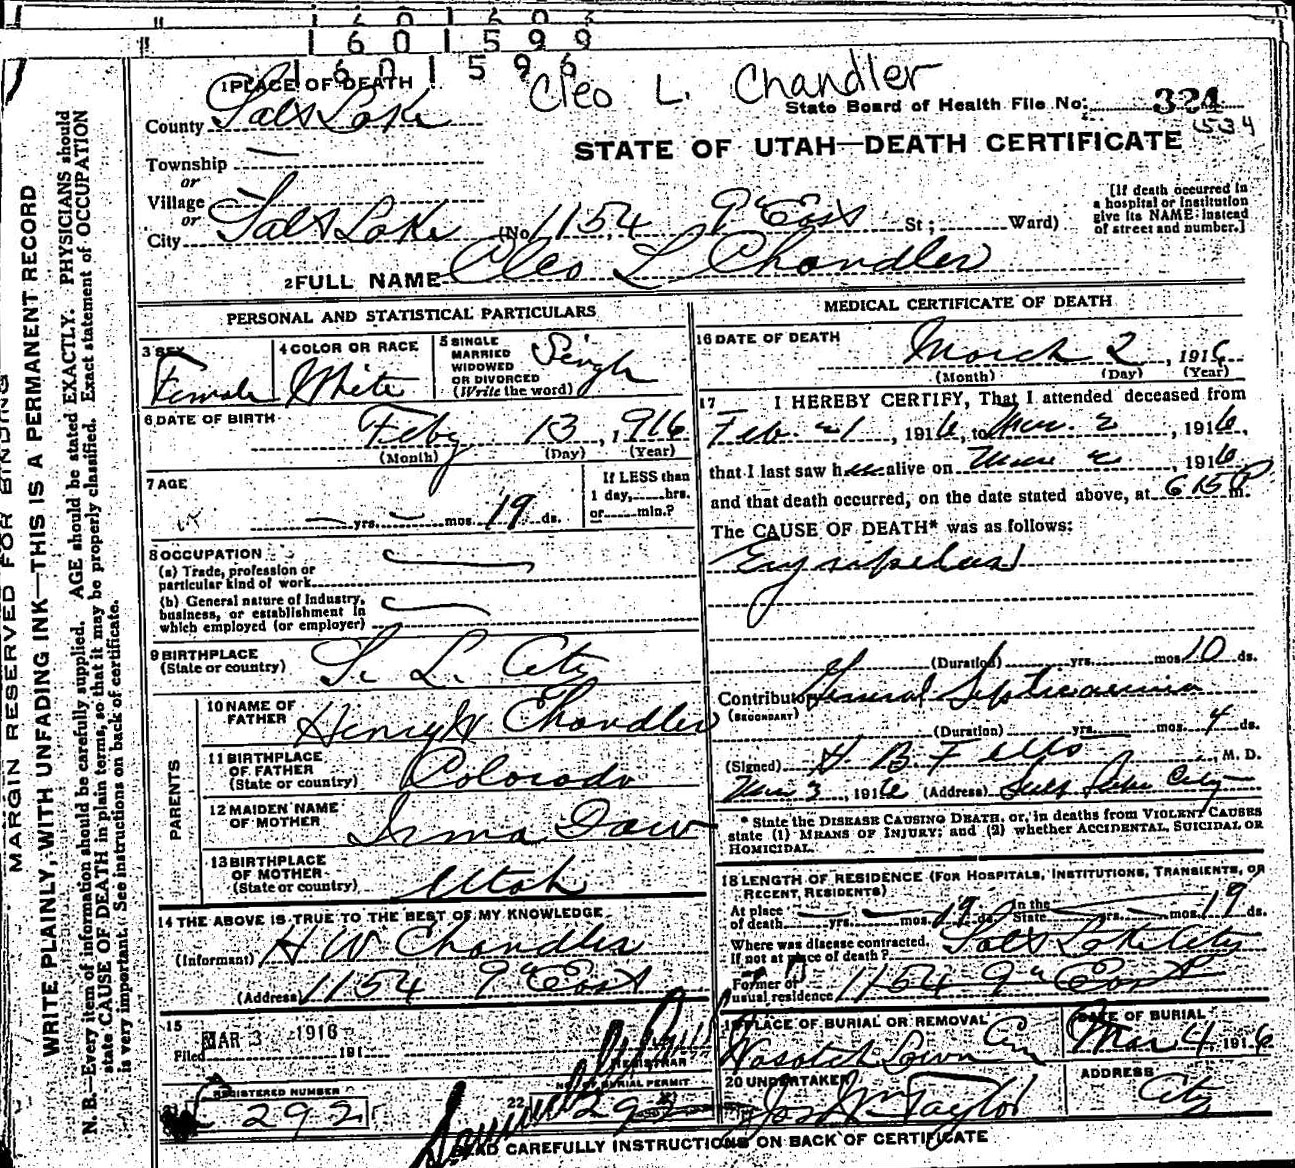 1601599
1601596
Cleo L. Chandler
1 PLACE OF DEATH
State Board of Health File No. 324
1534
County Salt Lake
STATE OF UTAH—DEATH CERTIFICATE
Township —
or
Village
or
City Salt Lake (No. 1154 9th East St; Ward)
[If death occurred in a hospital or institution give its NAME instead of street and number.]
2 FULL NAME Cleo L Chandler
PERSONAL AND STATISTICAL PARTICULARS
3 SEX Female
4 COLOR OR RACE White
5 SINGLE MARRIED WIDOWED OR DIVORCED (Write the word) Single
6 DATE OF BIRTH Feby 13, 1916
(Month) (Day) (Year)
7 AGE — yrs. — mos. 19 ds.
If LESS than 1 day, hrs. or min.?
8 OCCUPATION —
(a) Trade, profession or particular kind of work
(b) General nature of Industry, business, or establishment in which employed (or employer) —
9 BIRTHPLACE (State or country) S. L. City
PARENTS
10 NAME OF FATHER Henry W Chandler
11 BIRTHPLACE OF FATHER (State or country) Colorado
12 MAIDEN NAME OF MOTHER Irma
13 BIRTHPLACE OF MOTHER (State or country) Utah
14 THE ABOVE IS TRUE TO THE BEST OF MY KNOWLEDGE
(Informant) H W Chandler
(Address) 1154 9th East
15 Filed MAR 3 1916 191
REGISTRAR
REGISTERED NUMBER 292
22 NO. OF BURIAL PERMIT 292
MEDICAL CERTIFICATE OF DEATH
16 DATE OF DEATH March 2, 1916
(Month) (Day) (Year)
17 I HEREBY CERTIFY, That I attended deceased from
Feb. 21, 1916, to Mar. 2, 1916,
that I last saw her alive on Mar 2, 1916
and that death occurred, on the date stated above, at 6 15 P m.
The CAUSE OF DEATH* was as follows:
Erysipelas
(Duration) yrs. mos. 10 ds.
Contributory General Septicaemia
(SECONDARY)
(Duration) yrs. mos. 4 ds.
(Signed) H B Felts, M. D.
Mar 3, 1916 (Address) Salt Lake City
* State the DISEASE CAUSING DEATH, or, in deaths from VIOLENT CAUSES
state (1) MEANS OF INJURY; and (2) whether ACCIDENTAL, SUICIDAL OR
HOMICIDAL.
18 LENGTH OF RESIDENCE (FOR HOSPITALS, INSTITUTIONS, TRANSIENTS, OR
RECENT RESIDENTS)
At place of death — yrs. — mos. 19 ds. In the State — yrs. — mos. 19 ds.
Where was disease contracted, If not at place of death? Salt Lake City
Former or usual residence 1154 9th East
19 PLACE OF BURIAL OR REMOVAL Wasatch Lawn Cem
DATE OF BURIAL Mar 4 1916
20 UNDERTAKER Jos Wm Taylor
ADDRESS City
READ CAREFULLY INSTRUCTIONS ON BACK OF CERTIFICATE
MARGIN RESERVED FOR BINDING
WRITE PLAINLY, WITH UNFADING INK—THIS IS A PERMANENT RECORD
N. B.—Every item of information should be carefully supplied. AGE should be stated EXACTLY. PHYSICIANS should
state CAUSE OF DEATH in plain terms, so that it may be properly classified. Exact statement of OCCUPATION
is very important. See instructions on back of certificate.